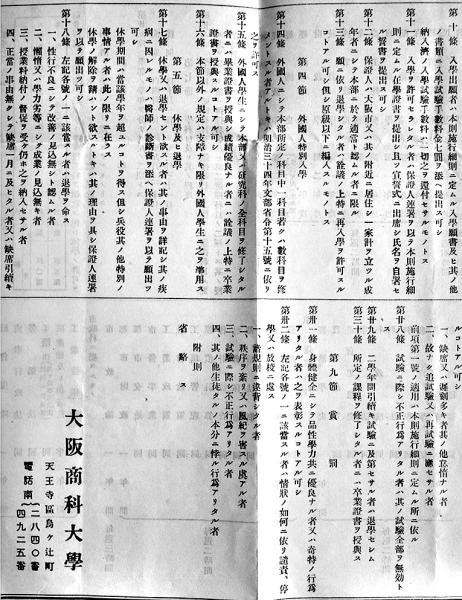 第十條 入學出願者ハ本則施行細則ニ定ムル入學願書及ヒ其ノ他
ノ書類ニ入學試驗手數料金七圓ヲ添ヘ提出スヘシ
納入濟ノ入學試驗手數料ハ一切之ヲ還付セサルモノトス
第十一條 入學ヲ許可セラレタル者ハ保證人連署ヲ以テ本則施行細
則ニ定ムル在學證書ヲ提出シ且ツ宣誓式ニ出席シ氏名ヲ自署セ
ル誓書ヲ提出スヘシ
第十二條 保證人ハ大阪市又ハ其ノ附近ニ居住シ一家計ヲ立ツル成
年者ニシテ本部ニ於テ適當ト認ムル者ニ限ル
第十三條 願ニ依リ退學シタル者ハ詮議ノ上特ニ再入學ヲ許可スル
コトアルヘシ但シ原級以下ニ編入スルモノトス
第四節 外國人特別入學
第十四條 外國人ニシテ本部所定ノ科目中一科目若クハ數科目ヲ修
メントスル者アルトキハ明治三十四年文部省令第十五號ニ依リ
之ヲ許可ス
第十五條 外國人學生ニシテ本部又ハ研究科ノ全科目ヲ修了シタル
者ニハ畢業證書ヲ授與シ成績優良ナル者ニハ詮議ノ上特ニ卒業
證書ヲ授與スルコトアルヘシ
第十六條 本節以外ノ規定ハ支障ナキ限リ外國人學生ニ之ヲ準用ス
第五節 休學及ヒ退學
第十七條 休學又ハ退學セント欲スル者ハ其ノ事由ヲ詳記シ其ノ疾
病ニ因レルモノハ醫師ノ診斷書ヲ添ヘ保證人連署ヲ以テ願出ツ
ヘシ
休學期間ハ當該學年ヲ超ユルコトヲ得ス但シ兵役其ノ他特別ノ
事情アル者ハ此ノ限リニ在ラス
休學ノ解除ヲ請ハント欲スルトキハ其ノ理由ヲ具シ保證人連署
ヲ以テ願出ツヘシ
第十八條 左記各號ノ一ニ該當スル者ハ退學ヲ命ス
一、性行不良ニシテ改善ノ見込無シト認ムル者
二、懶惰又ハ學力劣等ニシテ成業ノ見込無キ者
三、授業料納付ノ督促ヲ受ケ仍ホ之ヲ納入セサル者
四、正當ノ事由無クシテ缺席一月ニ及ヒタル者又ハ缺席引續キ
ルコトアルヘシ
一、缺席又ハ遲刻多キ者其ノ他怠惰ナル者
二、故ナク追試驗又ハ再試驗ニ應セサル者
前項第一號ノ適用ハ本則施行細則ニ定ムル所ニ依ル
第廿八條 試驗ニ際シ不正行爲アリタル者ハ其ノ試驗全部ヲ無効ト
ス
第廿九條 二學年間引續キ試驗ニ及第セサル者ハ退學セシム
第三十條 所定ノ課程ヲ修了シタル者ニハ卒業證書ヲ授與ス
第九節 賞罰
第卅一條 身體健全ニシテ品性學力共ニ優良ナル者又ハ奇特ノ行爲
アリタル者ハ之ヲ表彰スルコトアルヘシ
第卅二條 左記各號ノ一ニ該當スル者ハ情狀ノ如何ニ依リ譴責、停
學又ハ放校ニ處ス
一、諸規則ニ違背シタル者
二、秩序ヲ紊リ又ハ風紀ヲ害スル虞アル者
三、試驗ニ際シ不正行爲アリタル者
四、其ノ他生徒タルノ本分ニ悖ル行爲アリタル者
附則
省略ス
大阪商科大學
天王寺區烏ケ辻町
電話南 二八四〇番
四九二五番